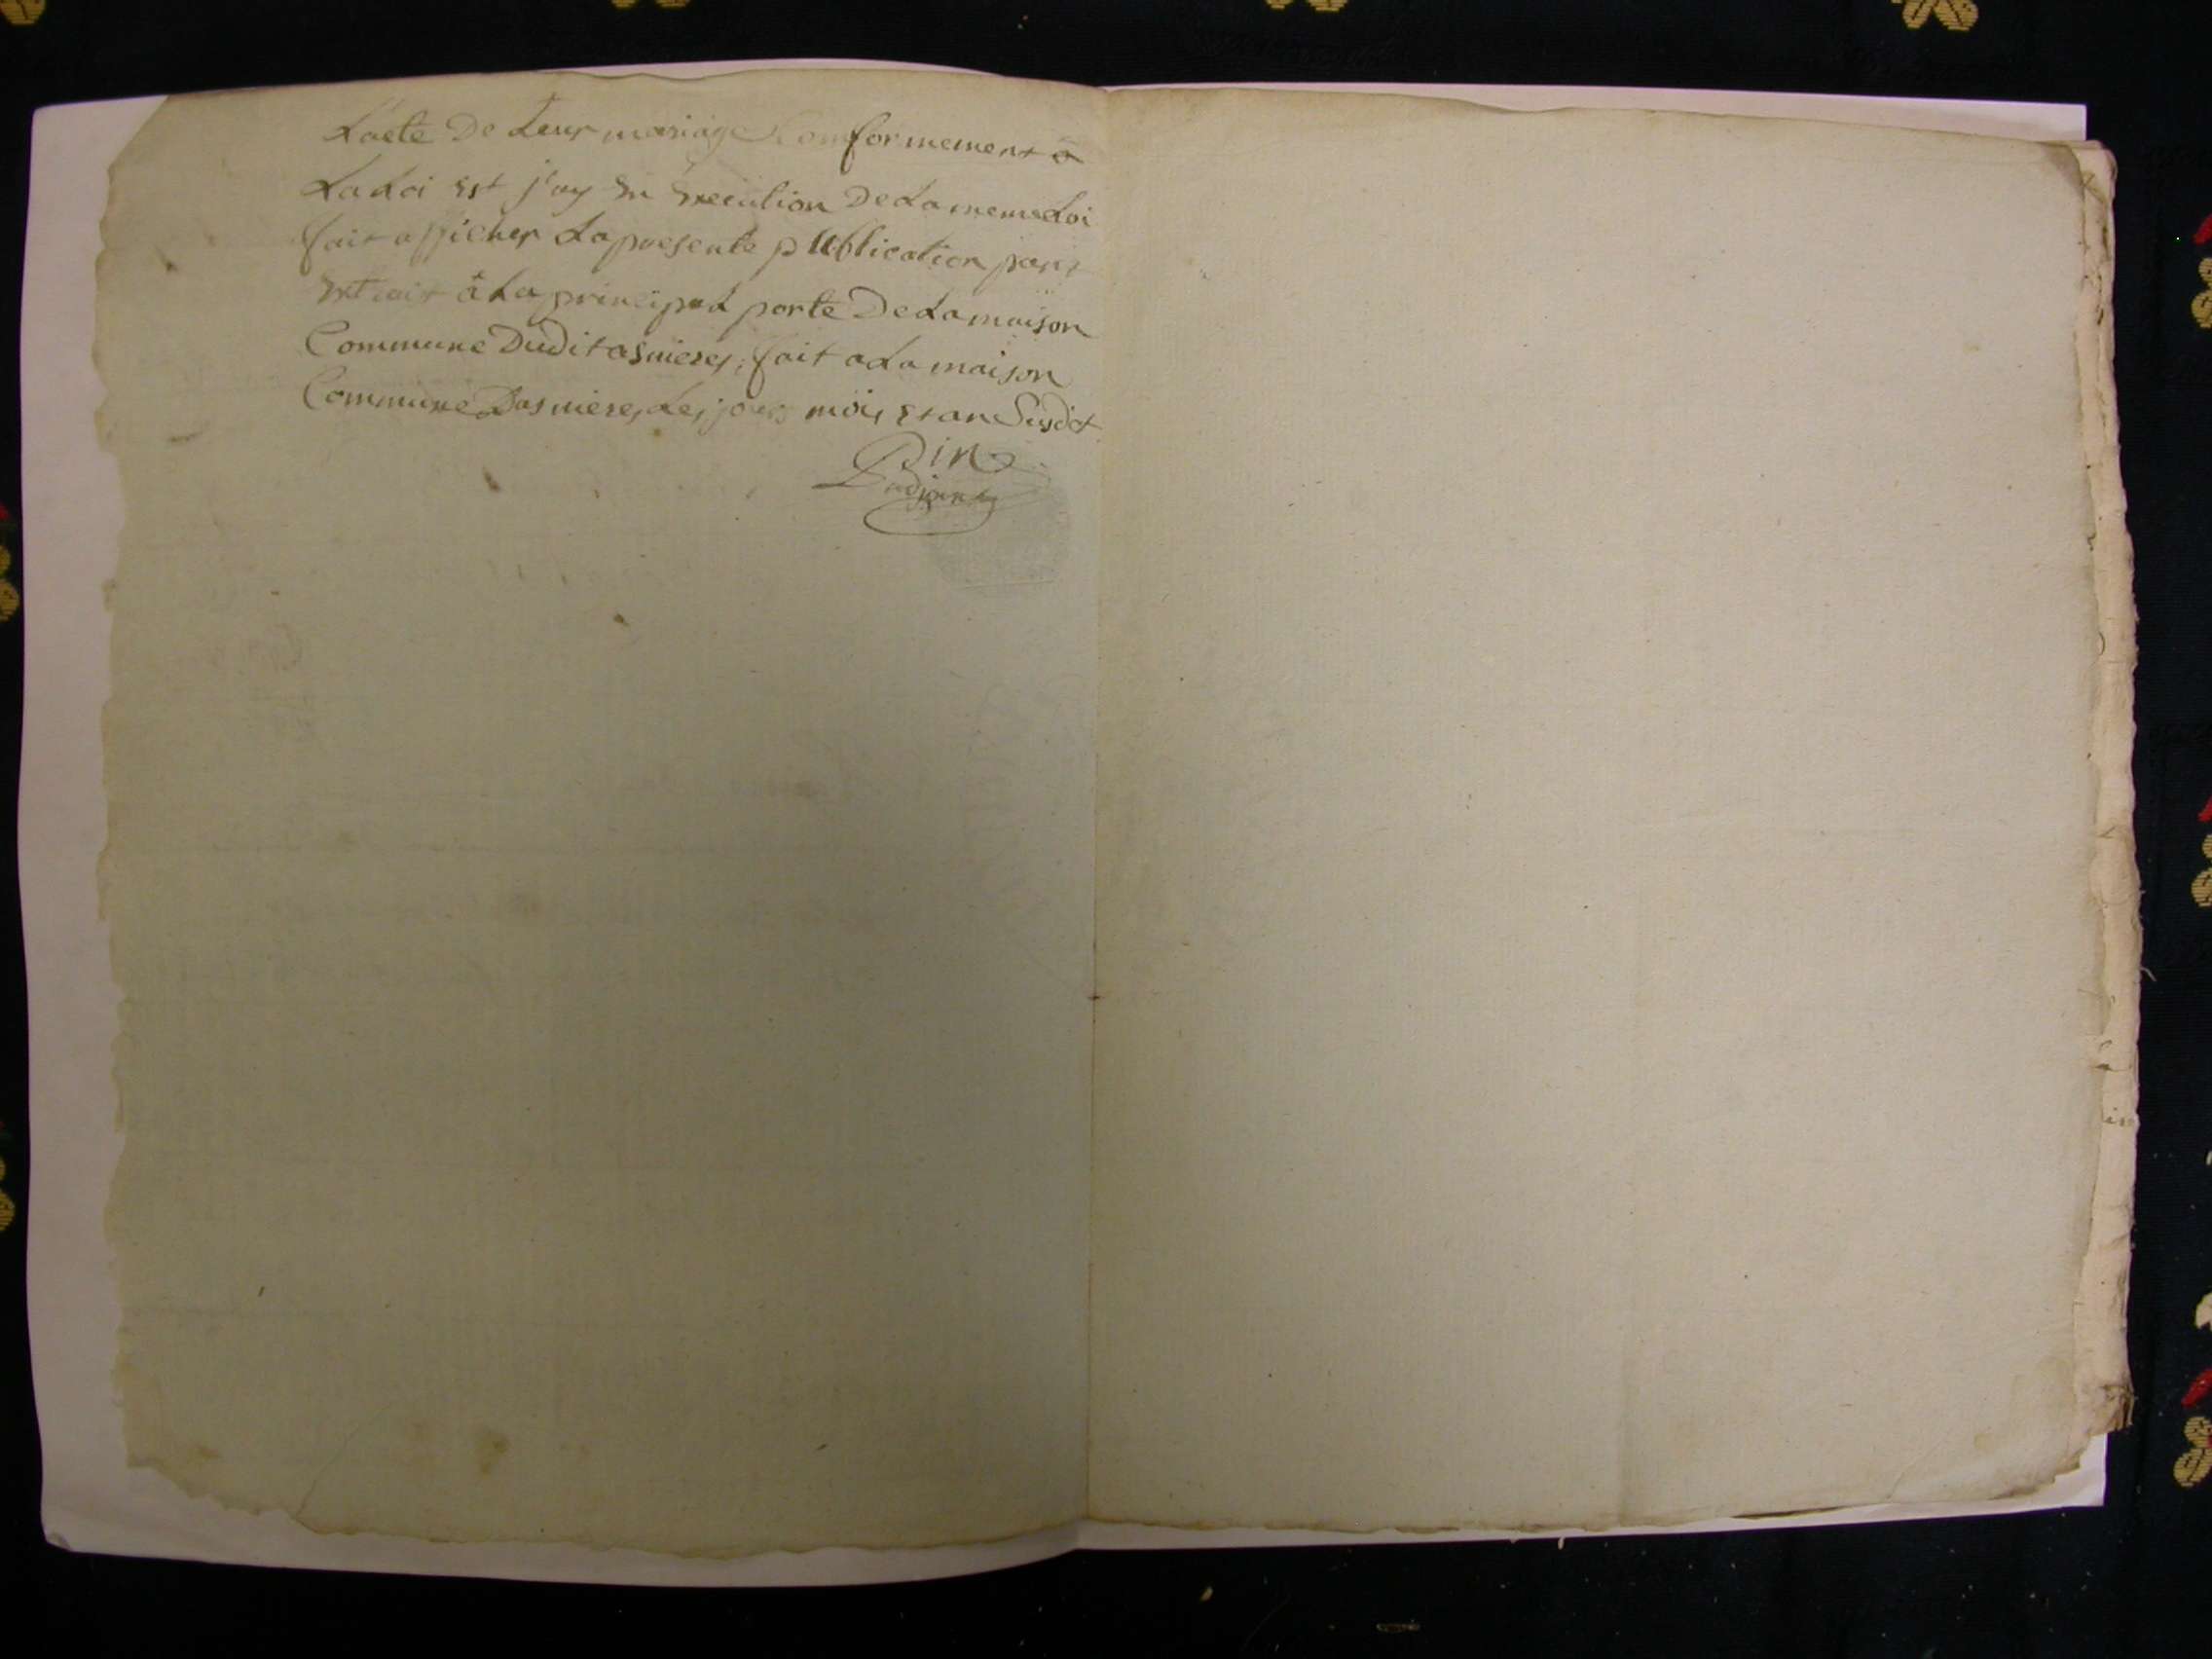 L'acte De Leur mariage Conformement a
La Loi est j'ay En Execution De La meme Loi
fait afficher La presente publication par
Extrait à La principal porte De La maison
Commune Dudit asnieres, fait a La maison
Commune Dasnieres, Les jours mois et an Susdit
Pin
adjoint